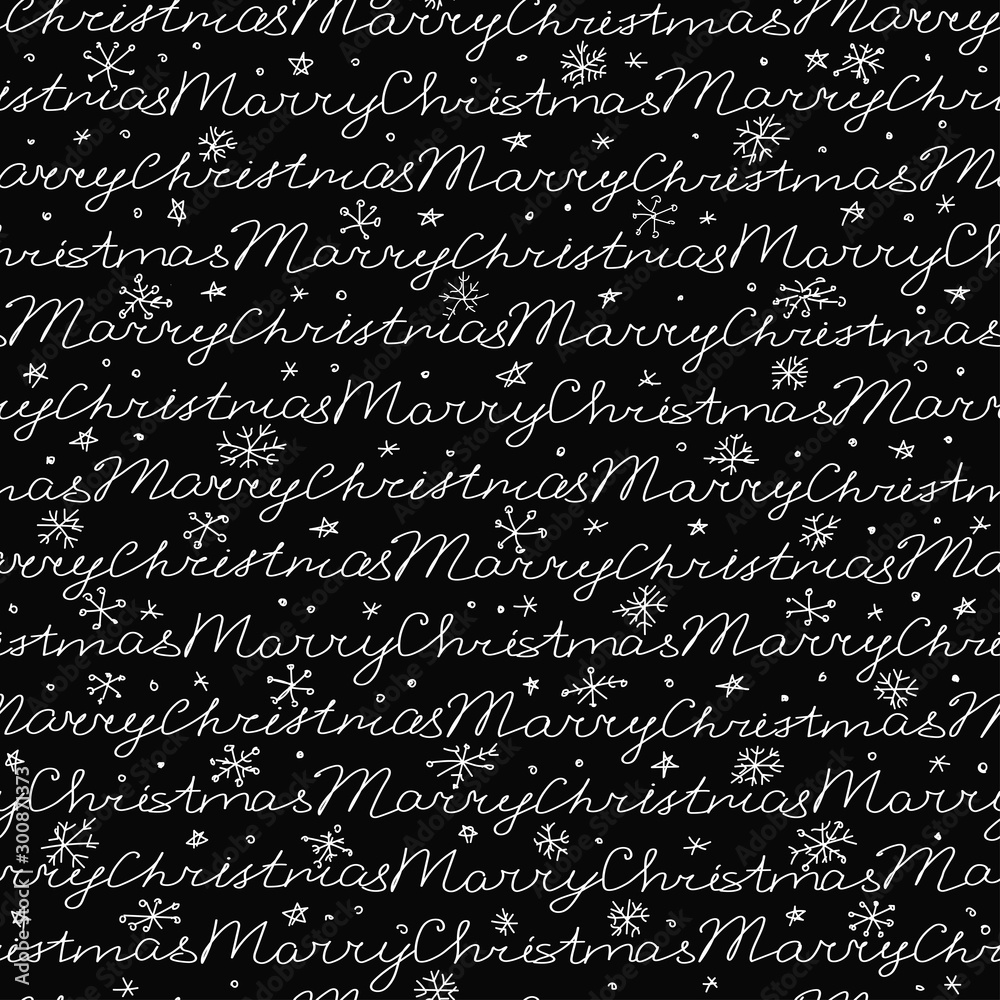 Christmas Marry Christmas Marry
istmas Marry Christmas Marry Chri
arry Christmas Marry Christmas M
hristmas Marry Christmas Marry C
s Marry Christmas Marry Christmas
ry Christmas Marry Christmas Marr
mas Marry Christmas Marry Christm
rry Christmas Marry Christmas Ma
istmas Marry Christmas Marry Chri
Marry Christmas Marry Christmas M
y Christmas Marry Christmas Marry
rry Christmas Marry Christmas Ma
istmas Marry Christmas Marry Chris
Marry Christmas Marry Christmas
Adobe Stock | #300871373